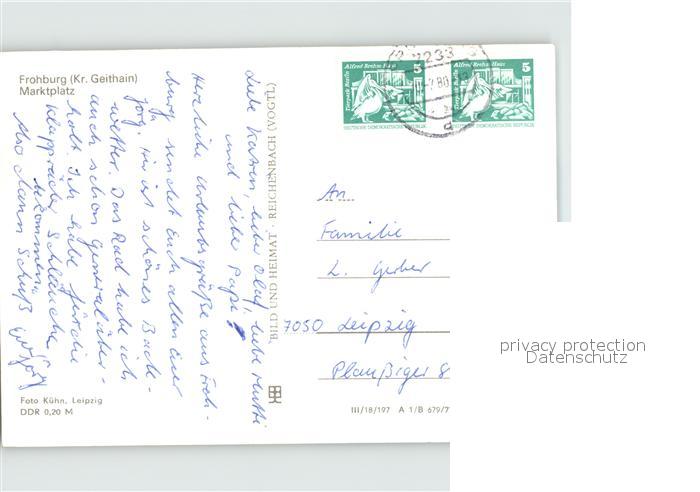 Frohburg (Kr. Geithain)
Marktplatz
Liebe Karen, liebe Olaf, liebe Mutti
und liebe Papi!
Herzliche Urlaubsgrüße aus Froh-
burg sendet Euch allen Euer
Jörg. Hier ist schönes Bade-
wetter. Das Rad habe ich
auch schon generalüber-
holt. Ich habe für die
Klappräder Schläuche
bekommen.
Also dann Schuß
Jörg
BILD UND HEIMAT · REICHENBACH (VOGTL)
Foto Kühn, Leipzig
DDR 0,20 M
Alfred-Brehm-Haus 5
Tierpark Berlin
DEUTSCHE DEMOKRATISCHE REPUBLIK
Alfred-Brehm-Haus 5
Tierpark Berlin
DEUTSCHE DEMOKRATISCHE REPUBLIK
7233
80
a
An
Familie
L. Gerber
7050 Leipzig
Plaußiger 8
III/18/197 A 1/B 679/7
privacy protection
Datenschutz